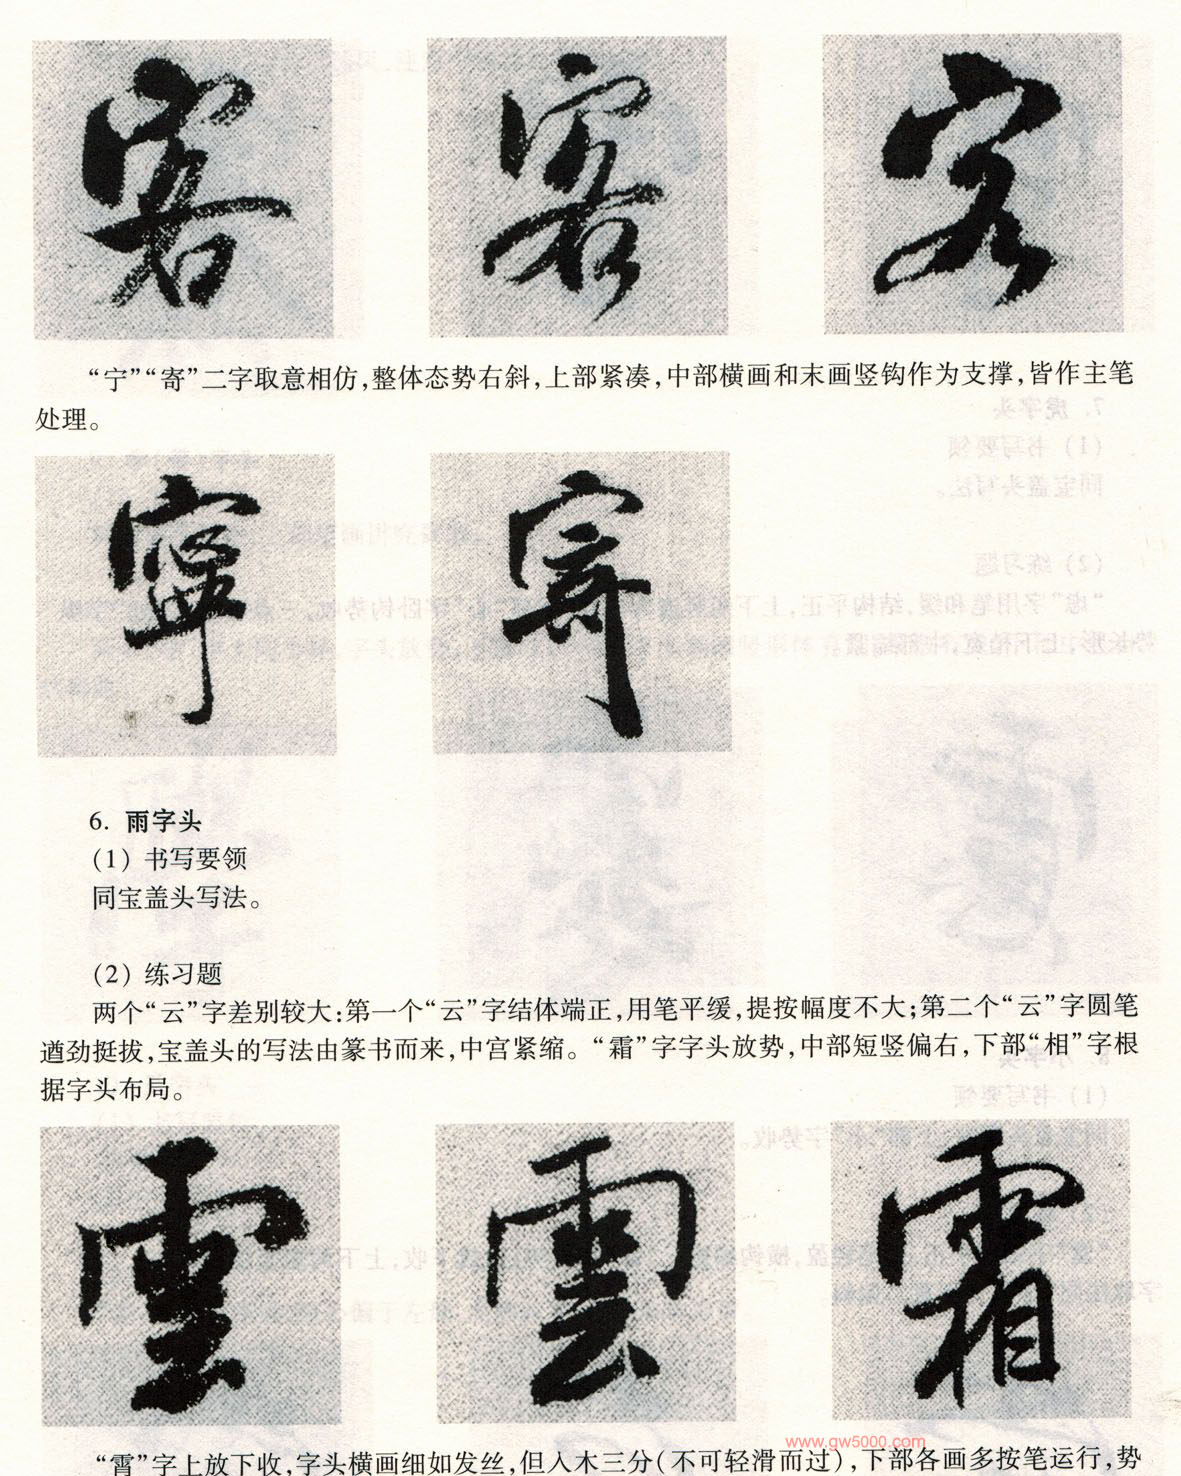 客 客 客
“宁”“寄”二字取意相仿,整体态势右斜,上部紧凑,中部横画和末画竖钩作为支撑,皆作主笔
处理。
寧 寄
6. 雨字头
(1) 书写要领
同宝盖头写法。
(2) 练习题
两个“云”字差别较大:第一个“云”字结体端正,用笔平缓,提按幅度不大;第二个“云”字圆笔
遒劲挺拔,宝盖头的写法由篆书而来,中宫紧缩。“霜”字字头放势,中部短竖偏右,下部“相”字根
据字头布局。
雲 雲 霜
www.gw5000.com
“霄”字上放下收,字头横画细如发丝,但入木三分(不可轻滑而过),下部各画多按笔运行,势